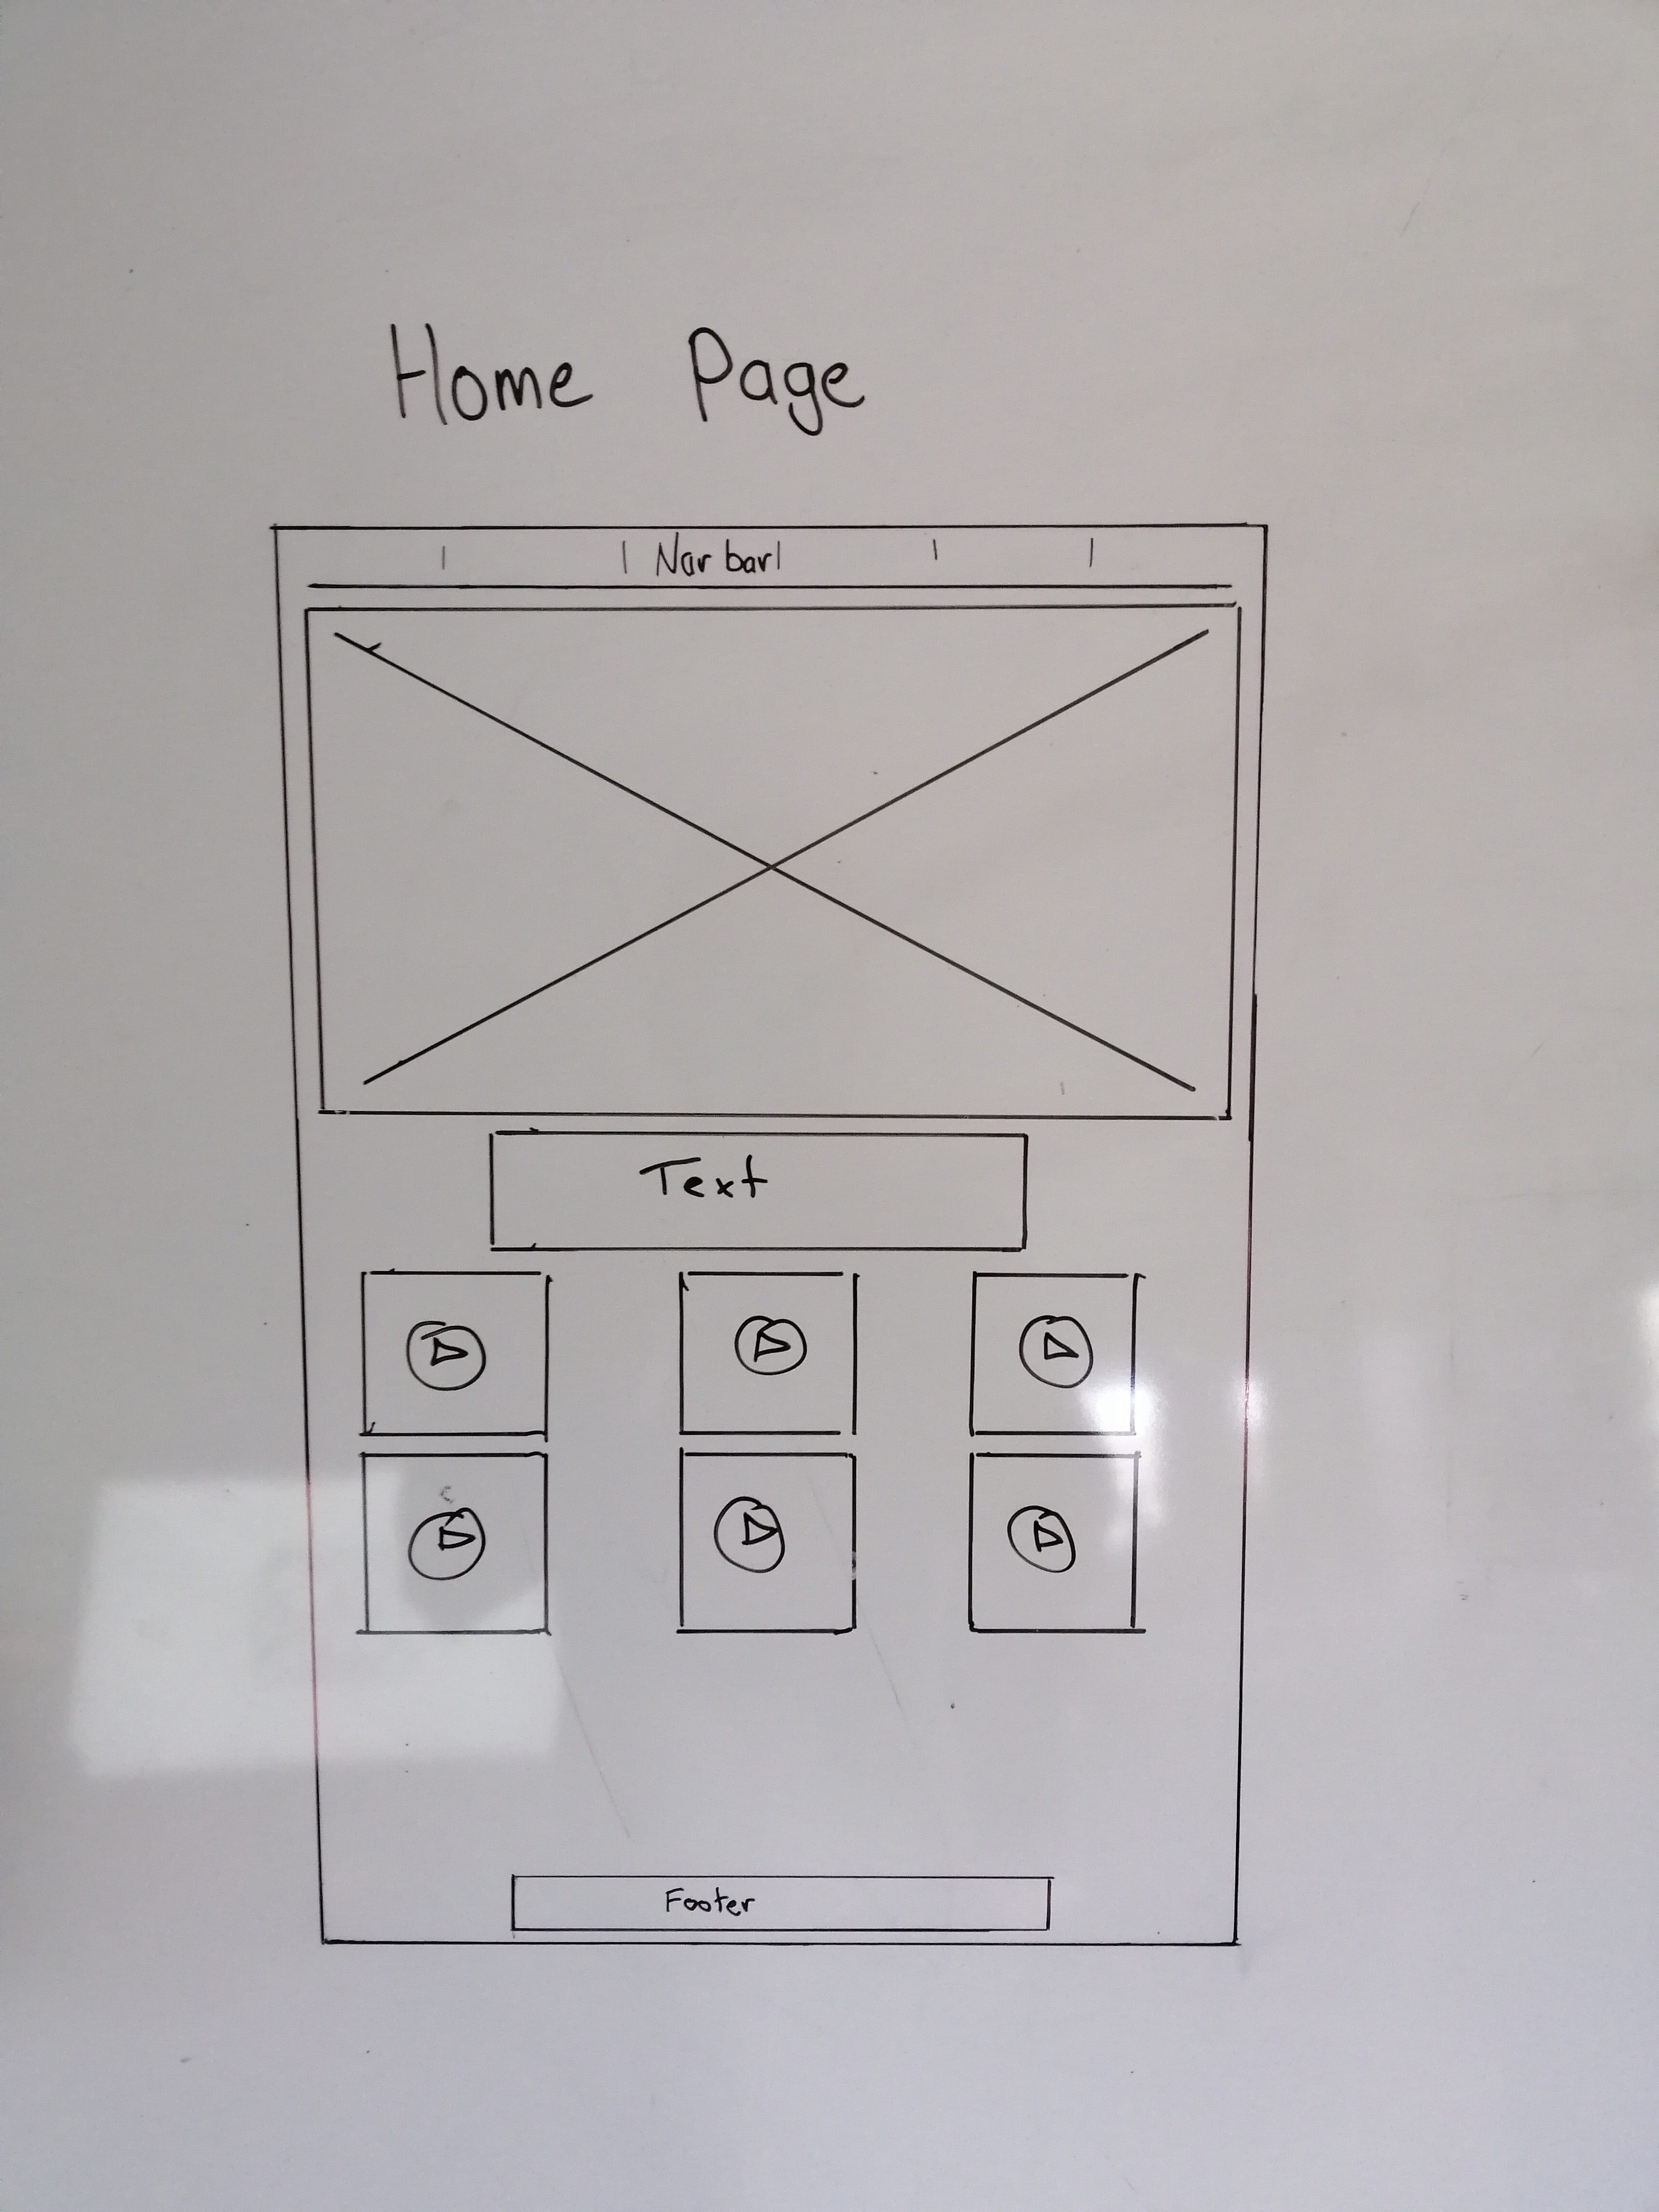 Home Page
Nav bar
Text
Footer